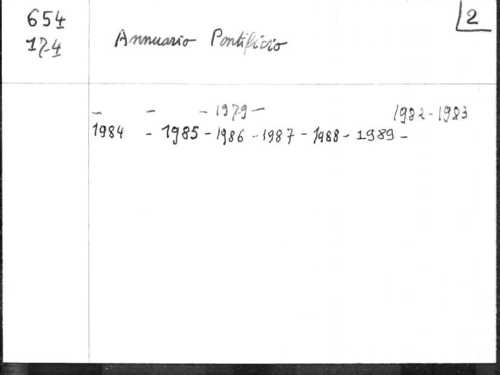 2
654
17-4
Annuario Pontificio
- - - 1979 - 1982 - 1983
1984 - 1985 - 1986 - 1987 - 1988 - 1989 -